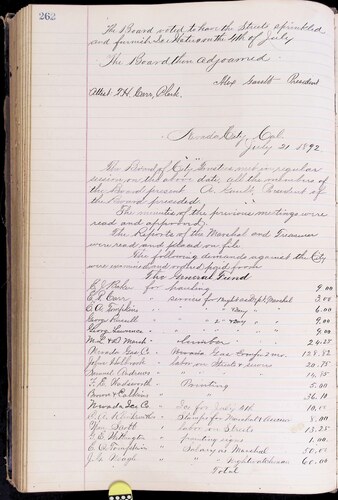 262
The Board voted to have the Streets sprinkled
and furnish Ice Water on the 4th of July
The Board then adjourned
Alex Gault President
Attest T.H. Carr, Clerk
Nevada City, Cal.
July 21 1892
The Board of City Trustees met in regular
session on the above date, all the members of
the Board present A. Gault, President of
the Board presided
The minutes of the previous meetings were
read and approved.
The Reports of the Marshal and Treasurer
were read and placed on file.
The following demands against the City
were examined and ordered paid from
The General Fund
Baker for hauling 9.00
Carr " services for Night and Spl. Marshal 3.00
E.A. Tompkins " " " Day " 6.00
George Russell " " " " Day " 9.00
Georg " " " " " 9.00
M.L. & D. Marsh " Lumber " 24.28
Nevada Gas Co " Nevada Gas 128.82
John " labor on Streets & sewers 20.75
Samuel Andrews " " " " 16.75
" Painting 5.00
& " " 36.10
Nevada Ice Co " Ice for July 4th 10.00
" Stamps for Marshal & 8.00
Wm Scott " labor on Streets 13.25
" printing signs 1.00
E.A. Tompkins " Salary as Marshal 50.00
J.G. " " Nightwatchman 60.00
Total